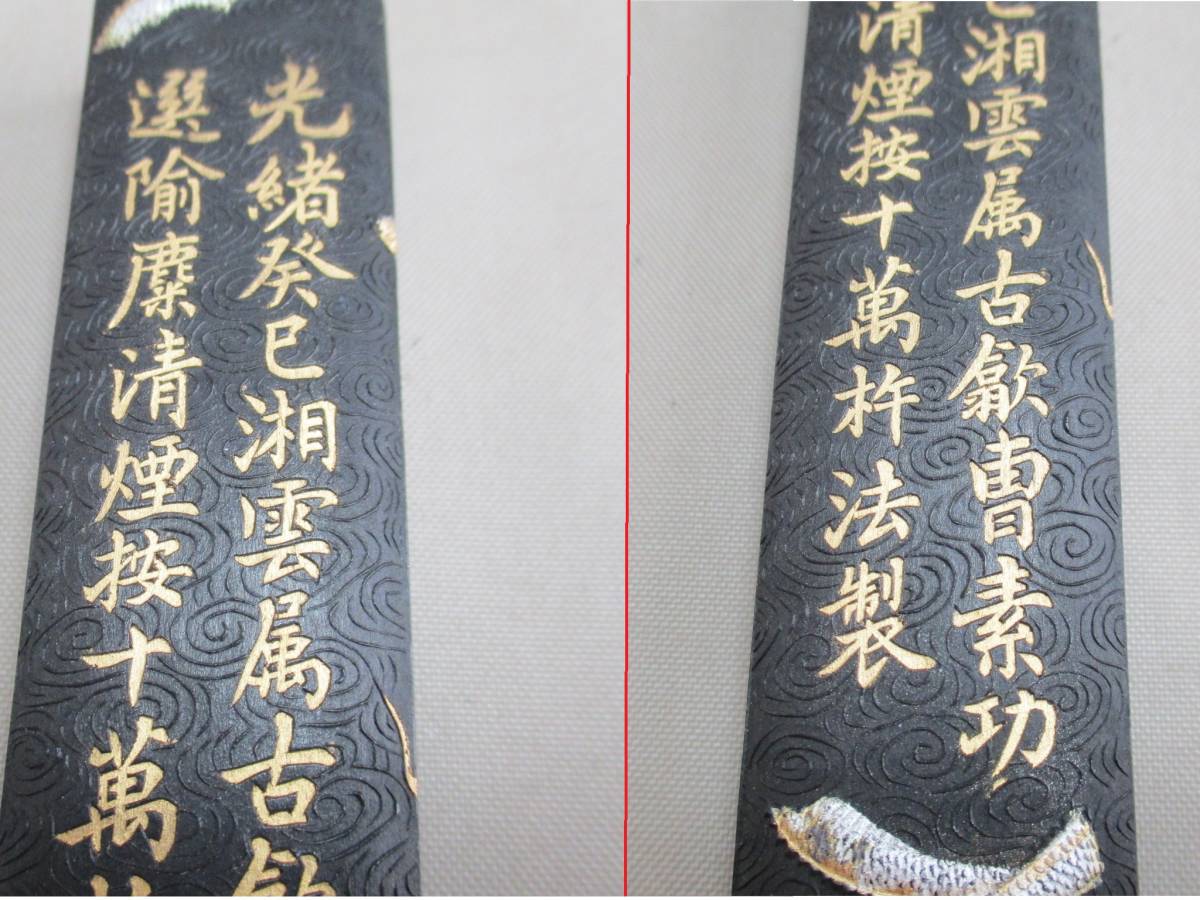 光緒癸巳湘雲属古歙
選隃麋清煙按十萬
巳湘雲属古歙曹素功
清煙按十萬杵法製